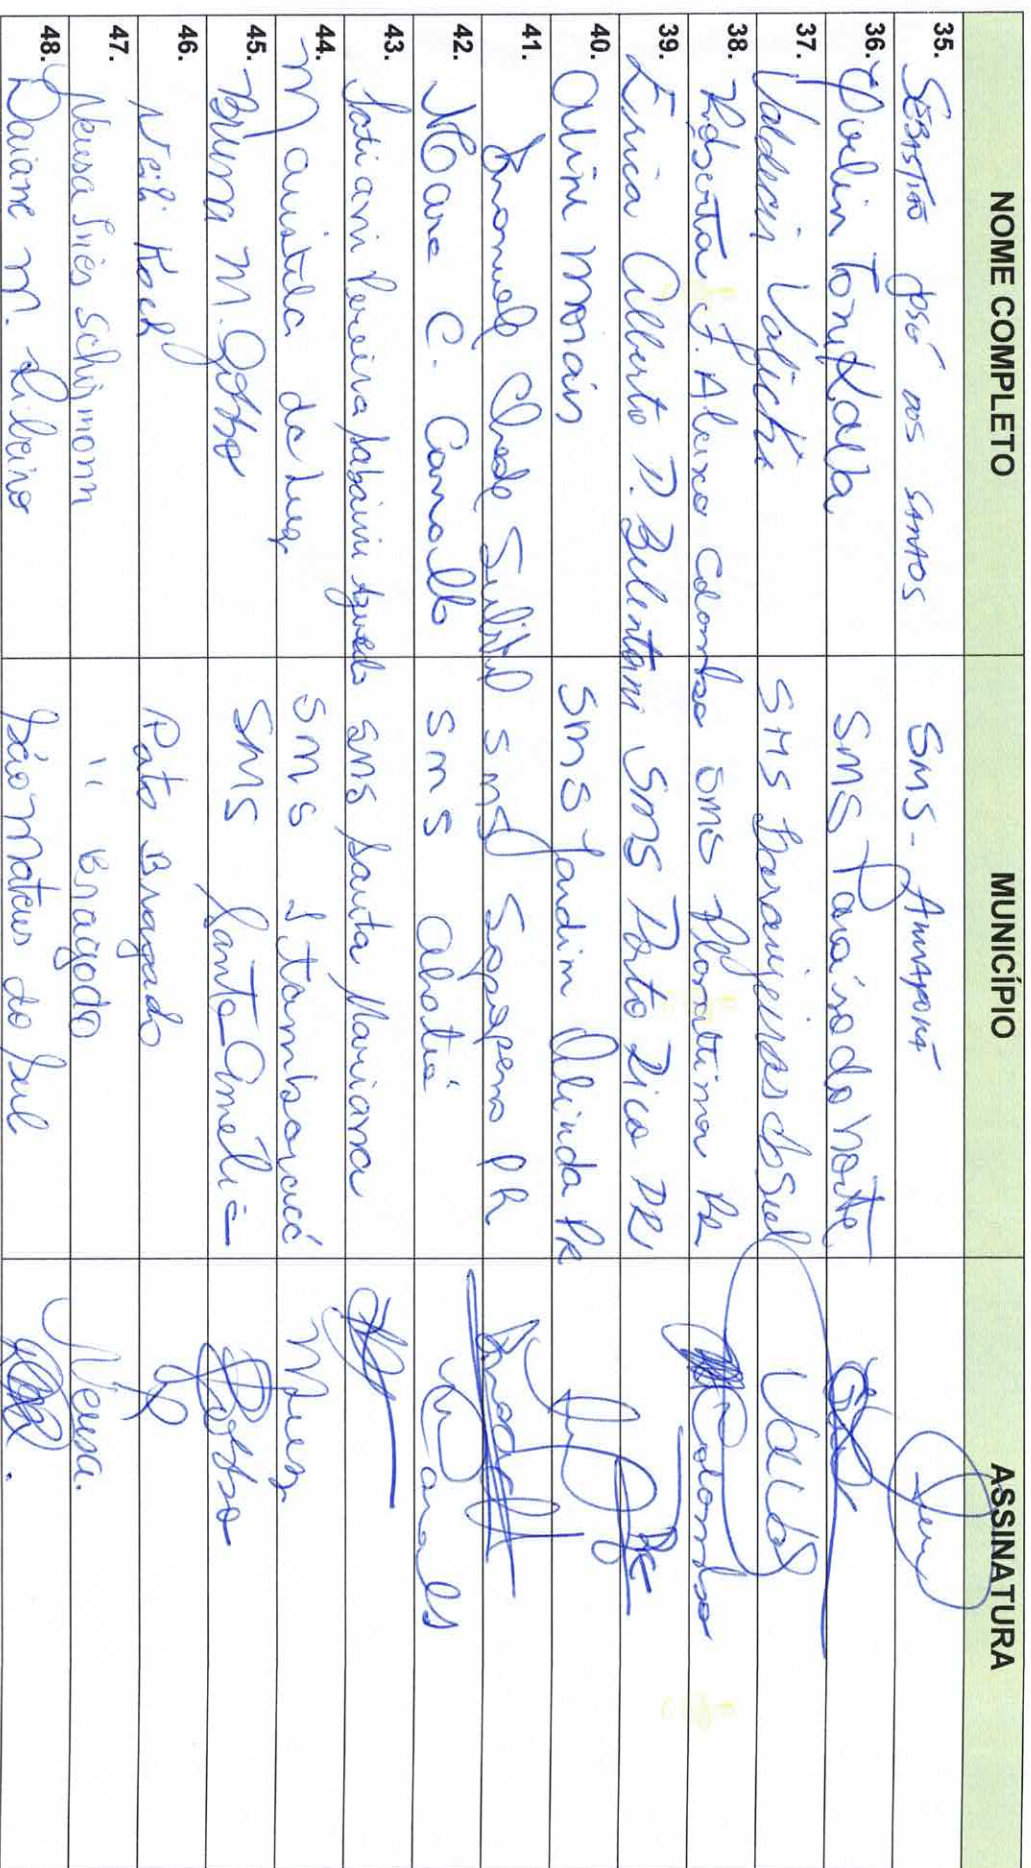 NOME COMPLETO MUNICÍPIO ASSINATURA
35. SEBASTIÃO JOSÉ DOS SANTOS SMS - AMAPORÃ
36. SMS Paraíso do Norte
37. Valdecir SMS Laranjeiras do Sul
38. Roberta F. Aleixo Colombo SMS Florestina PR Colombo
39. Erica Alberto D. Belentani SMS Porto Rico PR
40. Aline Morais SMS Jardim Olinda PR
41. Emanuele Chede SMS Sapopema PR
42. Mara C. Carvalho SMS Abatiá
43. Tatiani Pereira Sabaini Azevedo SMS Santa Mariana
44. Maristela da Luz SMS Itambaracá
45. Bruna M. Gobbo SMS Santa Amélia
46. Neili Koch Pato Bragado
47. Neusa Inês Schismann " Bragado Neusa.
48. Daiane M. Ribeiro São Mateus do Sul